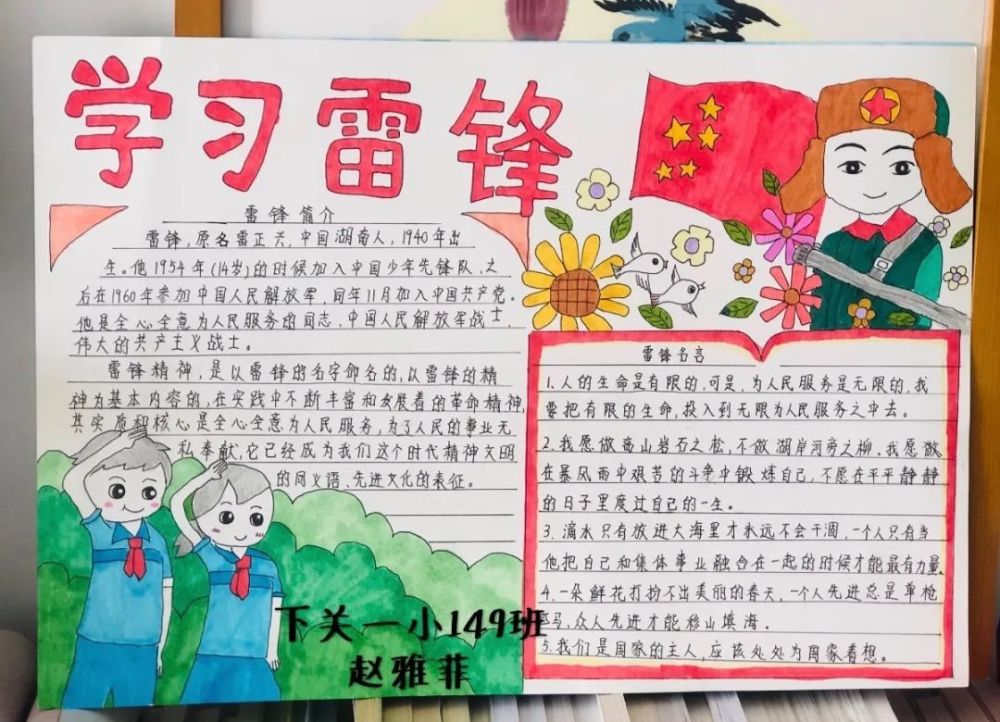 学习雷锋
雷锋简介
雷锋，原名雷正兴，中国湖南人，1940年出
生。他1954年(14岁)的时候加入中国少年先锋队，之
后在1960年参加中国人民解放军，同年11月加入中国共产党。
他是全心全意为人民服务的同志、中国人民解放军战士，
伟大的共产主义战士。
雷锋精神，是以雷锋的名字命名的，以雷锋的精
神为基本内容的，在实践中不断丰富和发展着的革命精神，
其实质和核心是全心全意为人民服务，为了人民的事业无
私奉献，它已经成为我们这个时代精神文明
的同义语、先进文化的表征。
雷锋名言
1.人的生命是有限的，可是，为人民服务是无限的，我
要把有限的生命，投入到无限为人民服务之中去。
2.我愿做高山岩石之松，不做湖岸河旁之柳。我愿做
在暴风雨中艰苦的斗争中锻炼自己，不愿在平平静静
的日子里度过自己的一生。
3.滴水只有放进大海里才永远不会干涸，一个人只有当
他把自己和集体事业融合在一起的时候才能最有力量。
4.一朵鲜花打扮不出美丽的春天，一个人先进总是单枪
匹马，众人先进才能移山填海。
5.我们是国家的主人，应该处处为国家着想。
下关一小149班
赵雅菲